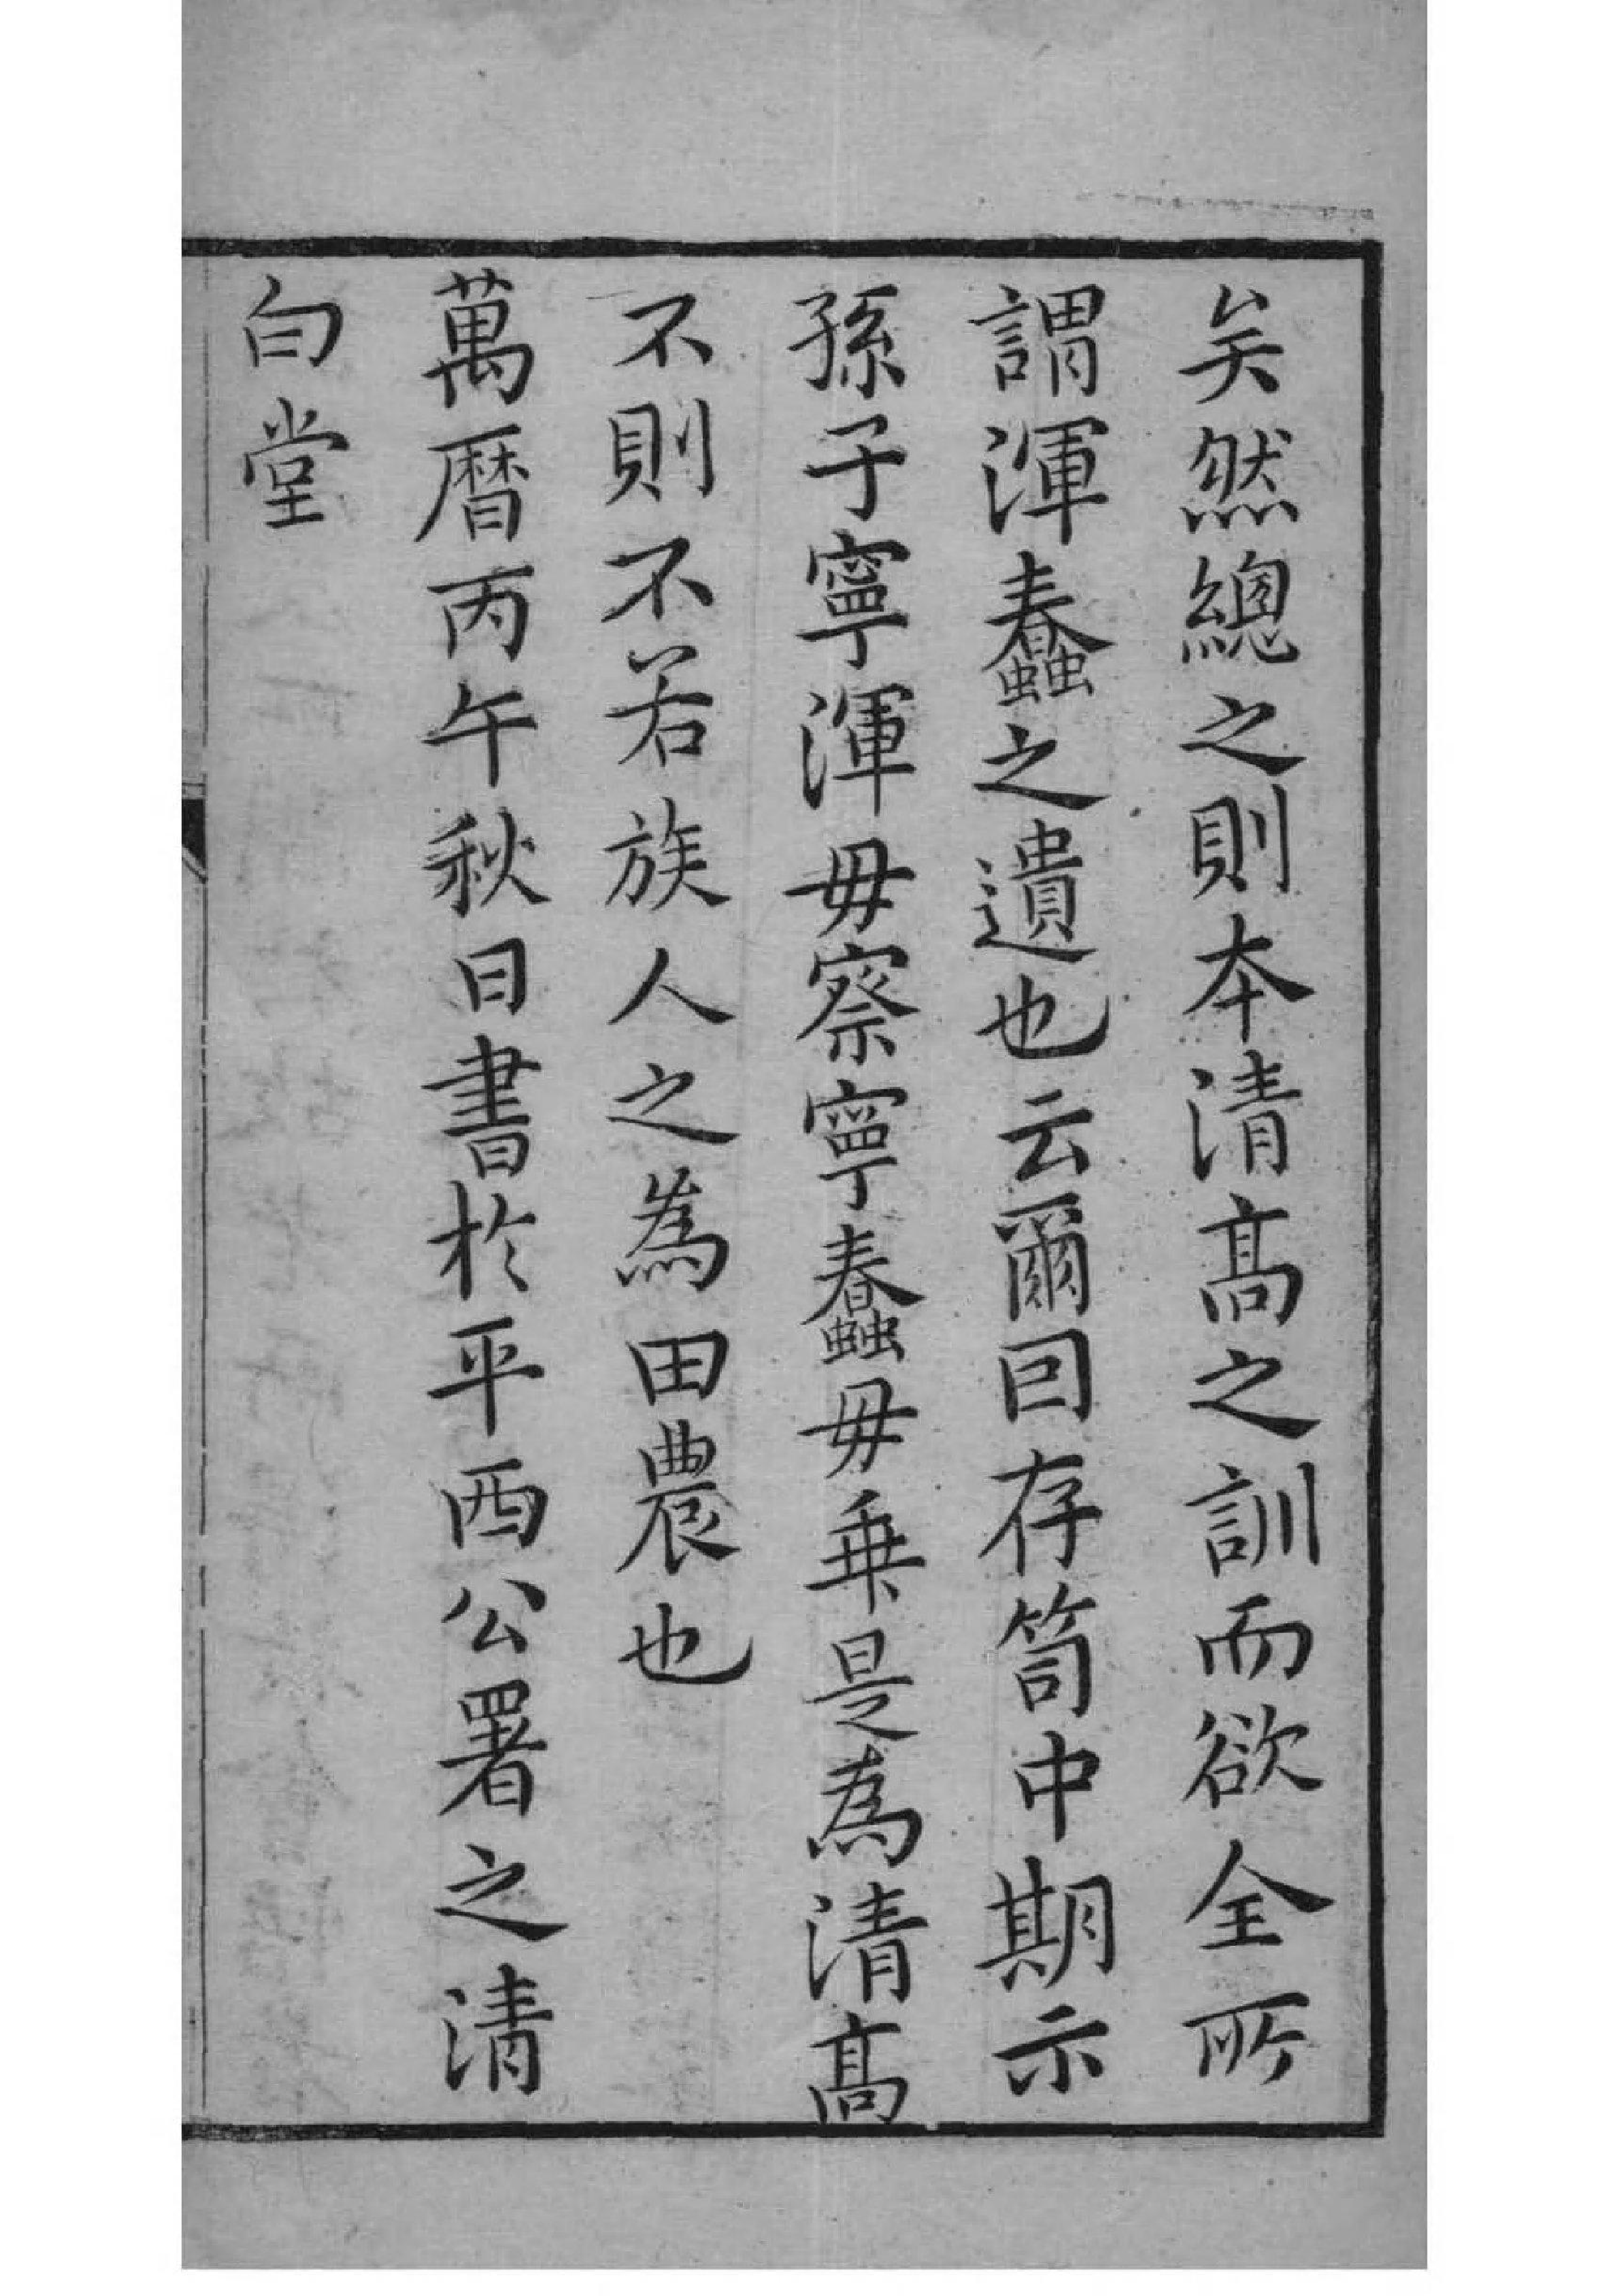 矣然緫之則本清髙之訓而欲全所
謂渾蠢之遺也云爾囙存笥中期示
孫子寧渾毋察寧蠢毋乗是為清髙
不則不若族人之為田農也
萬曆丙午秋日書於平西公署之清
白堂